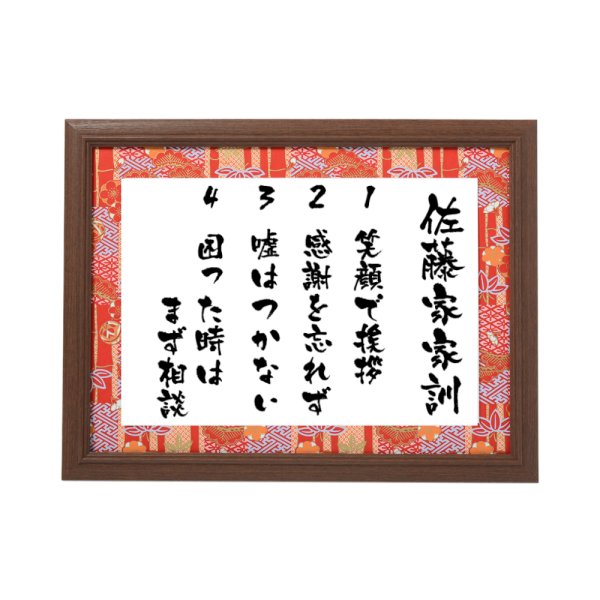 佐藤家家訓
1 笑顔で挨拶
2 感謝を忘れず
3 嘘はつかない
4 困った時は
まず相談